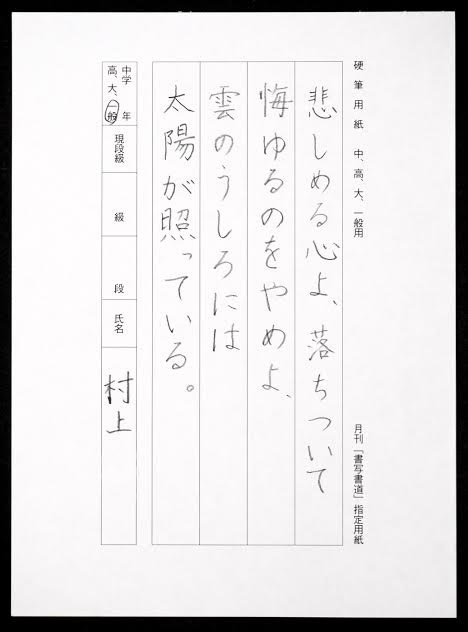 硬筆用紙　中、高、大、一般用
月刊「書写書道」指定用紙
悲しめる心よ、落ちついて
悔ゆるのをやめよ、
雲のうしろには
太陽が照っている。
中学　年
高、大、一般
現段級
級
段
氏名
村上